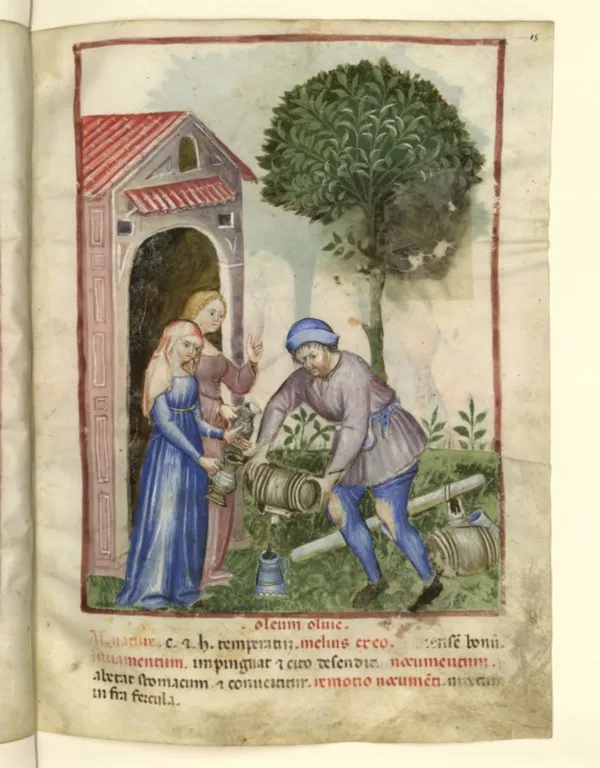 15
oleum oliue.
nature. c. ⁊ h. temperatiȝ. melius ex eo. bonū.
iuuamentum. inpinguat ⁊ cito descendit. nocumentum.
abetat stomacum ⁊ conuertitur. remotio nocumēti.
in fra fercula.